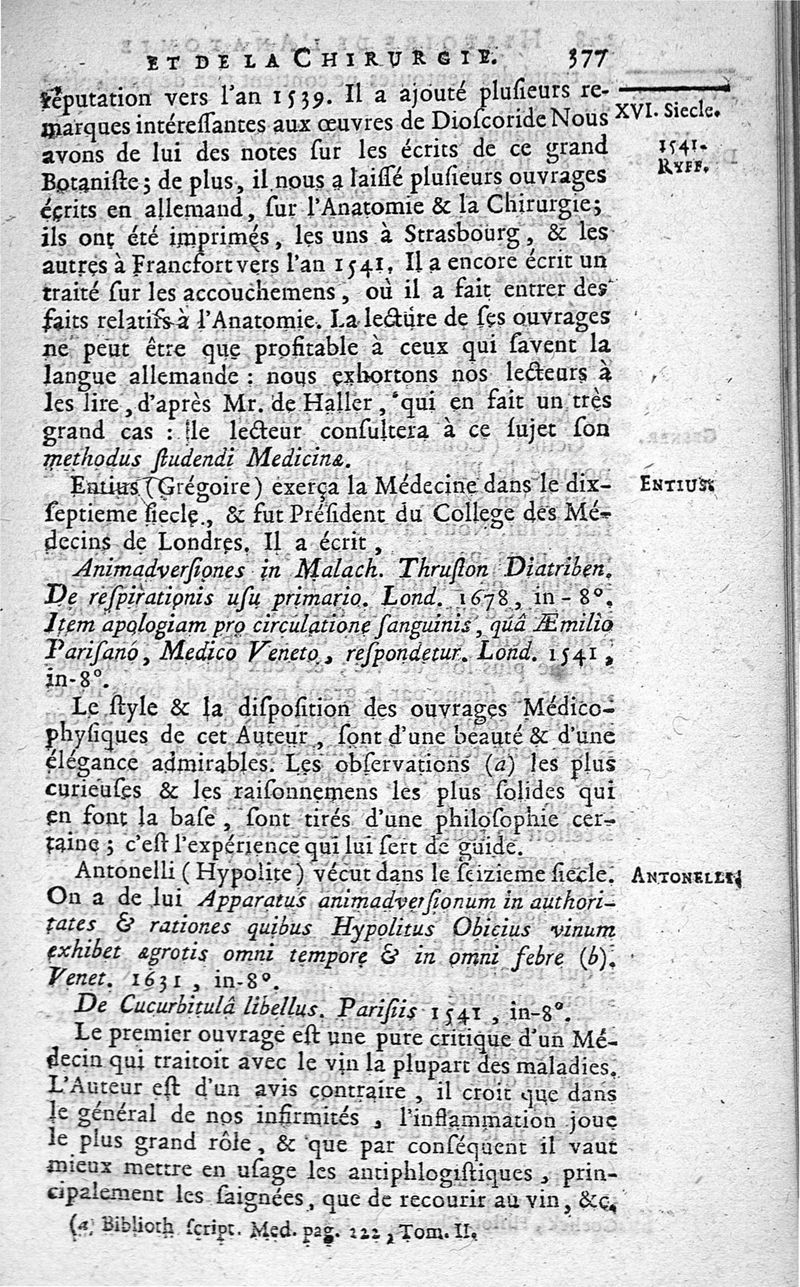 ET DE LA CHIRURGIE. 377
réputation vers l'an 1539. Il a ajouté pluſieurs re-
marques intéreſſantes aux œuvres de Dioſcoride Nous
XVI. Siecle.
avons de lui des notes ſur les écrits de ce grand
1541.
Botaniſte; de plus, il nous a laiſſé plusieurs ouvrages
RYFF.
écrits en allemand, ſur l'Anatomie & la Chirurgie;
ils ont été imprimés, les uns à Strasbourg, & les
autres à Francfort vers l'an 1541. Il a encore écrit un
traité ſur les accouchemens, où il a fait entrer des
faits relatifs à l'Anatomie. La lecture de ſes ouvrages
ne peut être que profitable à ceux qui ſavent la
langue allemande : nous exhortons nos lecteurs à
les lire, d'après Mr. de Haller, qui en fait un très
grand cas : le lecteur conſultera à ce ſujet ſon
methodus ſtudendi Medicinæ.
Entius (Grégoire) exerça la Médecine dans le dix-
ENTIUS.
ſeptieme ſiecle, & fut Préſident du College des Mé-
decins de Londres. Il a écrit,
Animadverſiones in Malach. Thruſton Diatriben.
De reſpirationis uſu primario. Lond. 1678, in-8°.
Item apologiam pro circulatione ſanguinis, quâ Æmilio
Pariſano, Medico Veneto, reſpondetur. Lond. 1541,
in-8°.
Le ſtyle & la diſpoſition des ouvrages Médico-
phyſiques de cet Auteur, ſont d'une beauté & d'une
élégance admirables. Les obſervations (a) les plus
curieuſes & les raiſonnemens les plus ſolides qui
en font la baſe, ſont tirés d'une philoſophie cer-
taine; c'eſt l'expérience qui lui ſert de guide.
Antonelli (Hypolite) vécut dans le ſeizieme ſiecle.
ANTONELLI.
On a de lui Apparatus animadverſionum in authori-
tates & rationes quibus Hypolitus Obicius vinum
exhibet ægrotis omni tempore & in omni febre (b).
Venet. 1631, in-8°.
De Cucurbitulâ libellus. Pariſiis 1541, in-8°.
Le premier ouvrage eſt une pure critique d'un Mé-
decin qui traitoit avec le vin la plupart des maladies.
L'Auteur eſt d'un avis contraire, il croit que dans
le général de nos infirmités, l'inflammation joue
le plus grand rôle, & que par conſéquent il vaut
mieux mettre en uſage les antiphlogiſtiques, prin-
cipalement les ſaignées, que de recourir au vin, &c.
(a) Biblioth ſcript. Med. pag. 222, Tom. II.